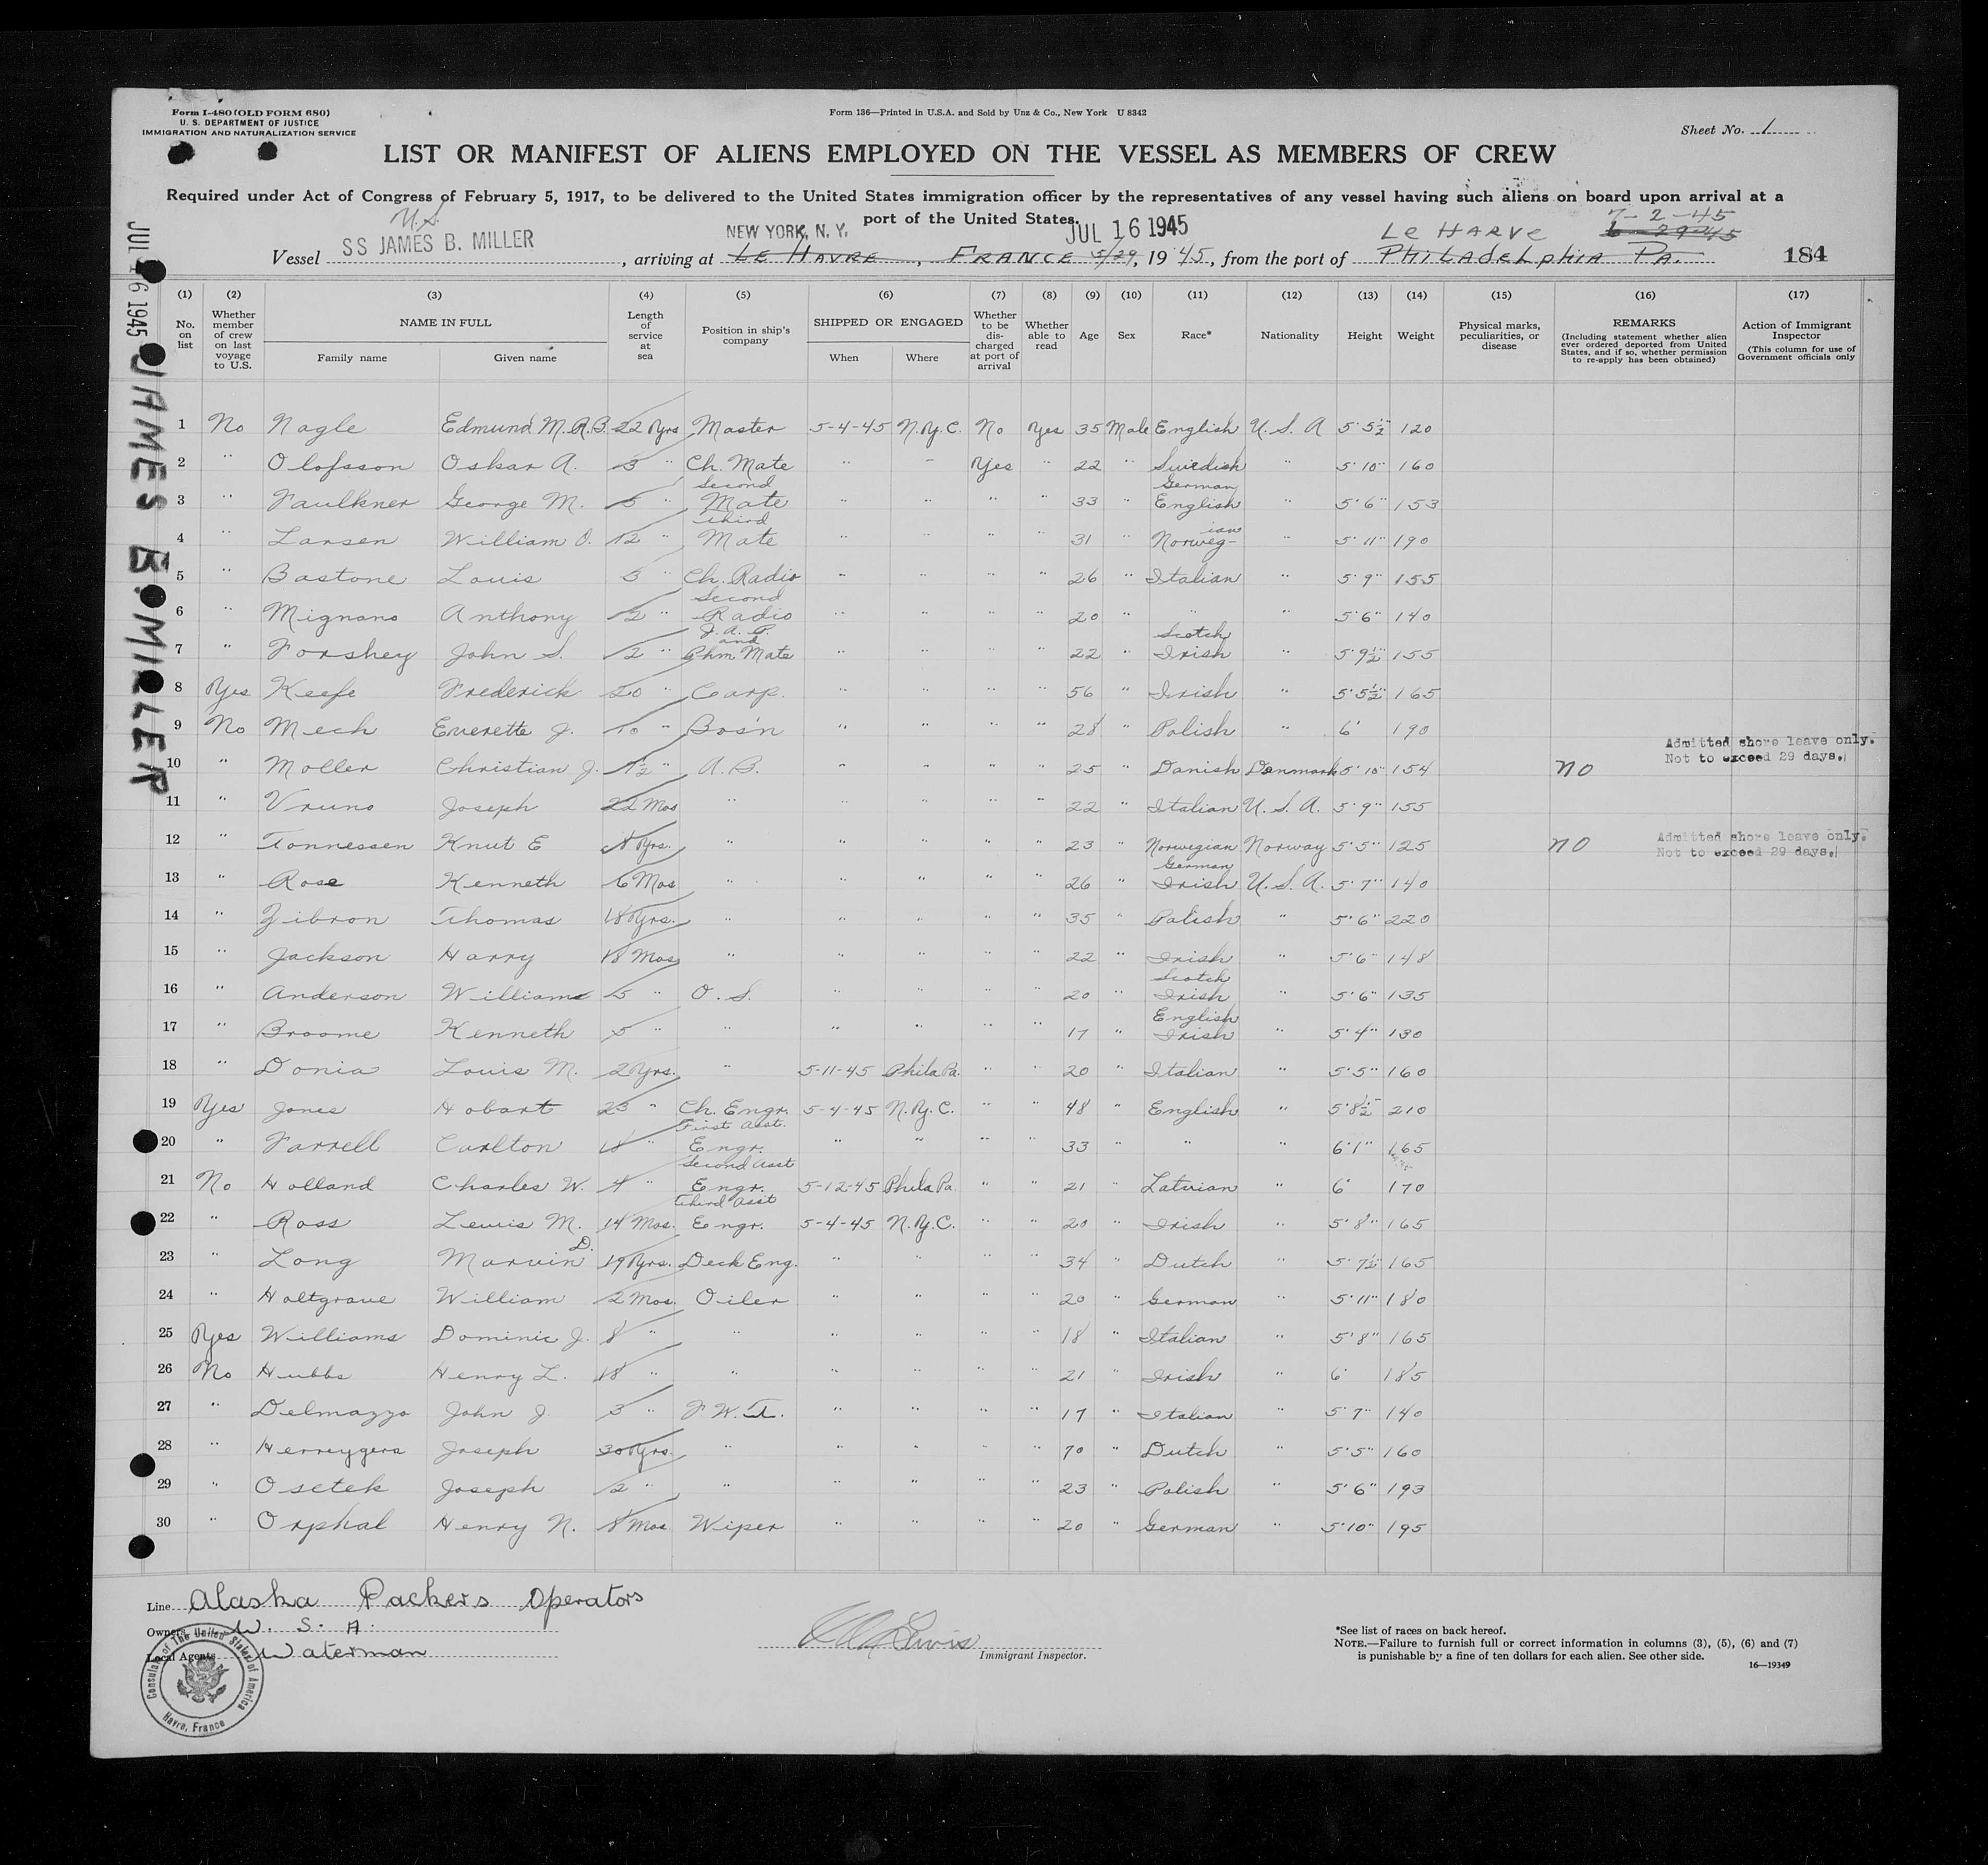 Form I-480 (OLD FORM 680)
U. S. DEPARTMENT OF JUSTICE
IMMIGRATION AND NATURALIZATION SERVICE
Form 136—Printed in U.S.A. and Sold by Unz & Co., New York U 8342
Sheet No. 1
LIST OR MANIFEST OF ALIENS EMPLOYED ON THE VESSEL AS MEMBERS OF CREW
Required under Act of Congress of February 5, 1917, to be delivered to the United States immigration officer by the representatives of any vessel having such aliens on board upon arrival at a
port of the United States.
U.S. NEW YORK, N. Y. JUL 16 1945 Le HARVE 7-2-45 6-29-45
Vessel SS JAMES B. MILLER, arriving at Le HAVRE, FRANCE 5/29, 1945, from the port of PHILADELPHIA PA. 184
JUL 16 1945 JAMES B. MILLER
(1) No. on list (2) Whether member of crew on last voyage to U.S. (3) NAME IN FULL Family name Given name (4) Length of service at sea (5) Position in ship's company (6) SHIPPED OR ENGAGED When Where (7) Whether to be discharged at port of arrival (8) Whether able to read (9) Age (10) Sex (11) Race* (12) Nationality (13) Height (14) Weight (15) Physical marks, peculiarities, or disease (16) REMARKS (Including statement whether alien ever ordered deported from United States, and if so, whether permission to re-apply has been obtained) (17) Action of Immigrant Inspector (This column for use of Government officials only
1 No Nagle Edmund M.R.B. 22 Yrs Master 5-4-45 N.Y.C. No Yes 35 Male English U. S. A 5'5½" 120
2 " Olofsson Oskar A. 3 " Ch. Mate " - Yes " 22 " Swedish " 5'10" 160
3 " Faulkner George M. 5 " Second Mate " " " " 33 " German English " 5'6" 153
4 " Larsen William O. 12 " Third Mate " " " " 31 " Norwegian " 5'11" 190
5 " Bastone Louis 5 " Ch. Radio " " " " 26 " Italian " 5'9" 155
6 " Mignano Anthony 2 " Second Radio " " " " 20 " " " 5'6" 140
7 " Forshey John S. 2 " J. A. P. and Phm Mate " " " " 22 " Scotch Irish " 5'9½" 155
8 Yes Keefe Frederick 20 " Carp. " " " " 56 " Irish " 5'5½" 165
9 No Mech Everette J. 10 " Bos'n " " " " 28 " Polish " 6' 190
10 " Moller Christian J. 1½ " A.B. " " " " 25 " Danish Denmark 5'10" 154 no Admitted shore leave only. Not to exceed 29 days.
11 " Vruno Joseph 22 Mos " " " " " 22 " Italian U. S. A. 5'9" 155
12 " Tonnessen Knut E 8 Yrs. " " " " " 23 " Norwegian Norway 5'5" 125 no Admitted shore leave only. Not to exceed 29 days.
13 " Rose Kenneth 6 Mos " " " " " 26 " German Irish U. S. A. 5'7" 140
14 " Zibron Thomas 18 Yrs. " " " " " 35 " Polish " 5'6" 220
15 " Jackson Harry 18 Mos " " " " " 22 " Irish " 5'6" 148
16 " Anderson Williams 5 " O. S. " " " " 20 " Scotch Irish " 5'6" 135
17 " Broome Kenneth 5 " " " " " " 17 " English Irish " 5'4" 130
18 " Donia Louis M. 2 Yrs. " 5-11-45 Phila Pa. " " 20 " Italian " 5'5" 160
19 Yes Jones Hobart 23 " Ch. Engr. 5-4-45 N.Y.C. " " 48 " English " 5'8½" 210
20 " Farrell Carlton 18 " First Asst. Engr. " " " " 33 " " " 6'1" 165
21 No Holland Charles W. 4 " Second Asst Engr. 5-12-45 Phila Pa. " " 21 " Latvian " 6' 170
22 " Ross Lewis M. 14 Mos. Third Asst Engr. 5-4-45 N.Y.C. " " 20 " Irish " 5'8" 165
23 " Long Marvin D. 19 Yrs. Deck Eng. " " " " 34 " Dutch " 5'7½" 165
24 " Holtgrave William 2 Mos. Oiler " " " " 20 " German " 5'11" 180
25 Yes Williams Dominic J. 8 " " " " " " 18 " Italian " 5'8" 165
26 No Hubbs Henry L. 18 " " " " " " 21 " Irish " 6' 185
27 " Delmazzo John J. 3 " F.W.T. " " " " 17 " Italian " 5'7" 140
28 " Herreygers Joseph 30 Yrs. " " " " " 70 " Dutch " 5'5" 160
29 " Osetek Joseph 2 " " " " " " 23 " Polish " 5'6" 193
30 " Orphal Henry N. 8 Mos Wiper " " " " 20 " German " 5'10" 195
Line Alaska Packers Operators
Owners W. S. A.
Local Agents Waterman
Consulate of The United States of America Havre, France
Lewis
Immigrant Inspector.
*See list of races on back hereof.
NOTE.—Failure to furnish full or correct information in columns (3), (5), (6) and (7)
is punishable by a fine of ten dollars for each alien. See other side.
16—19349